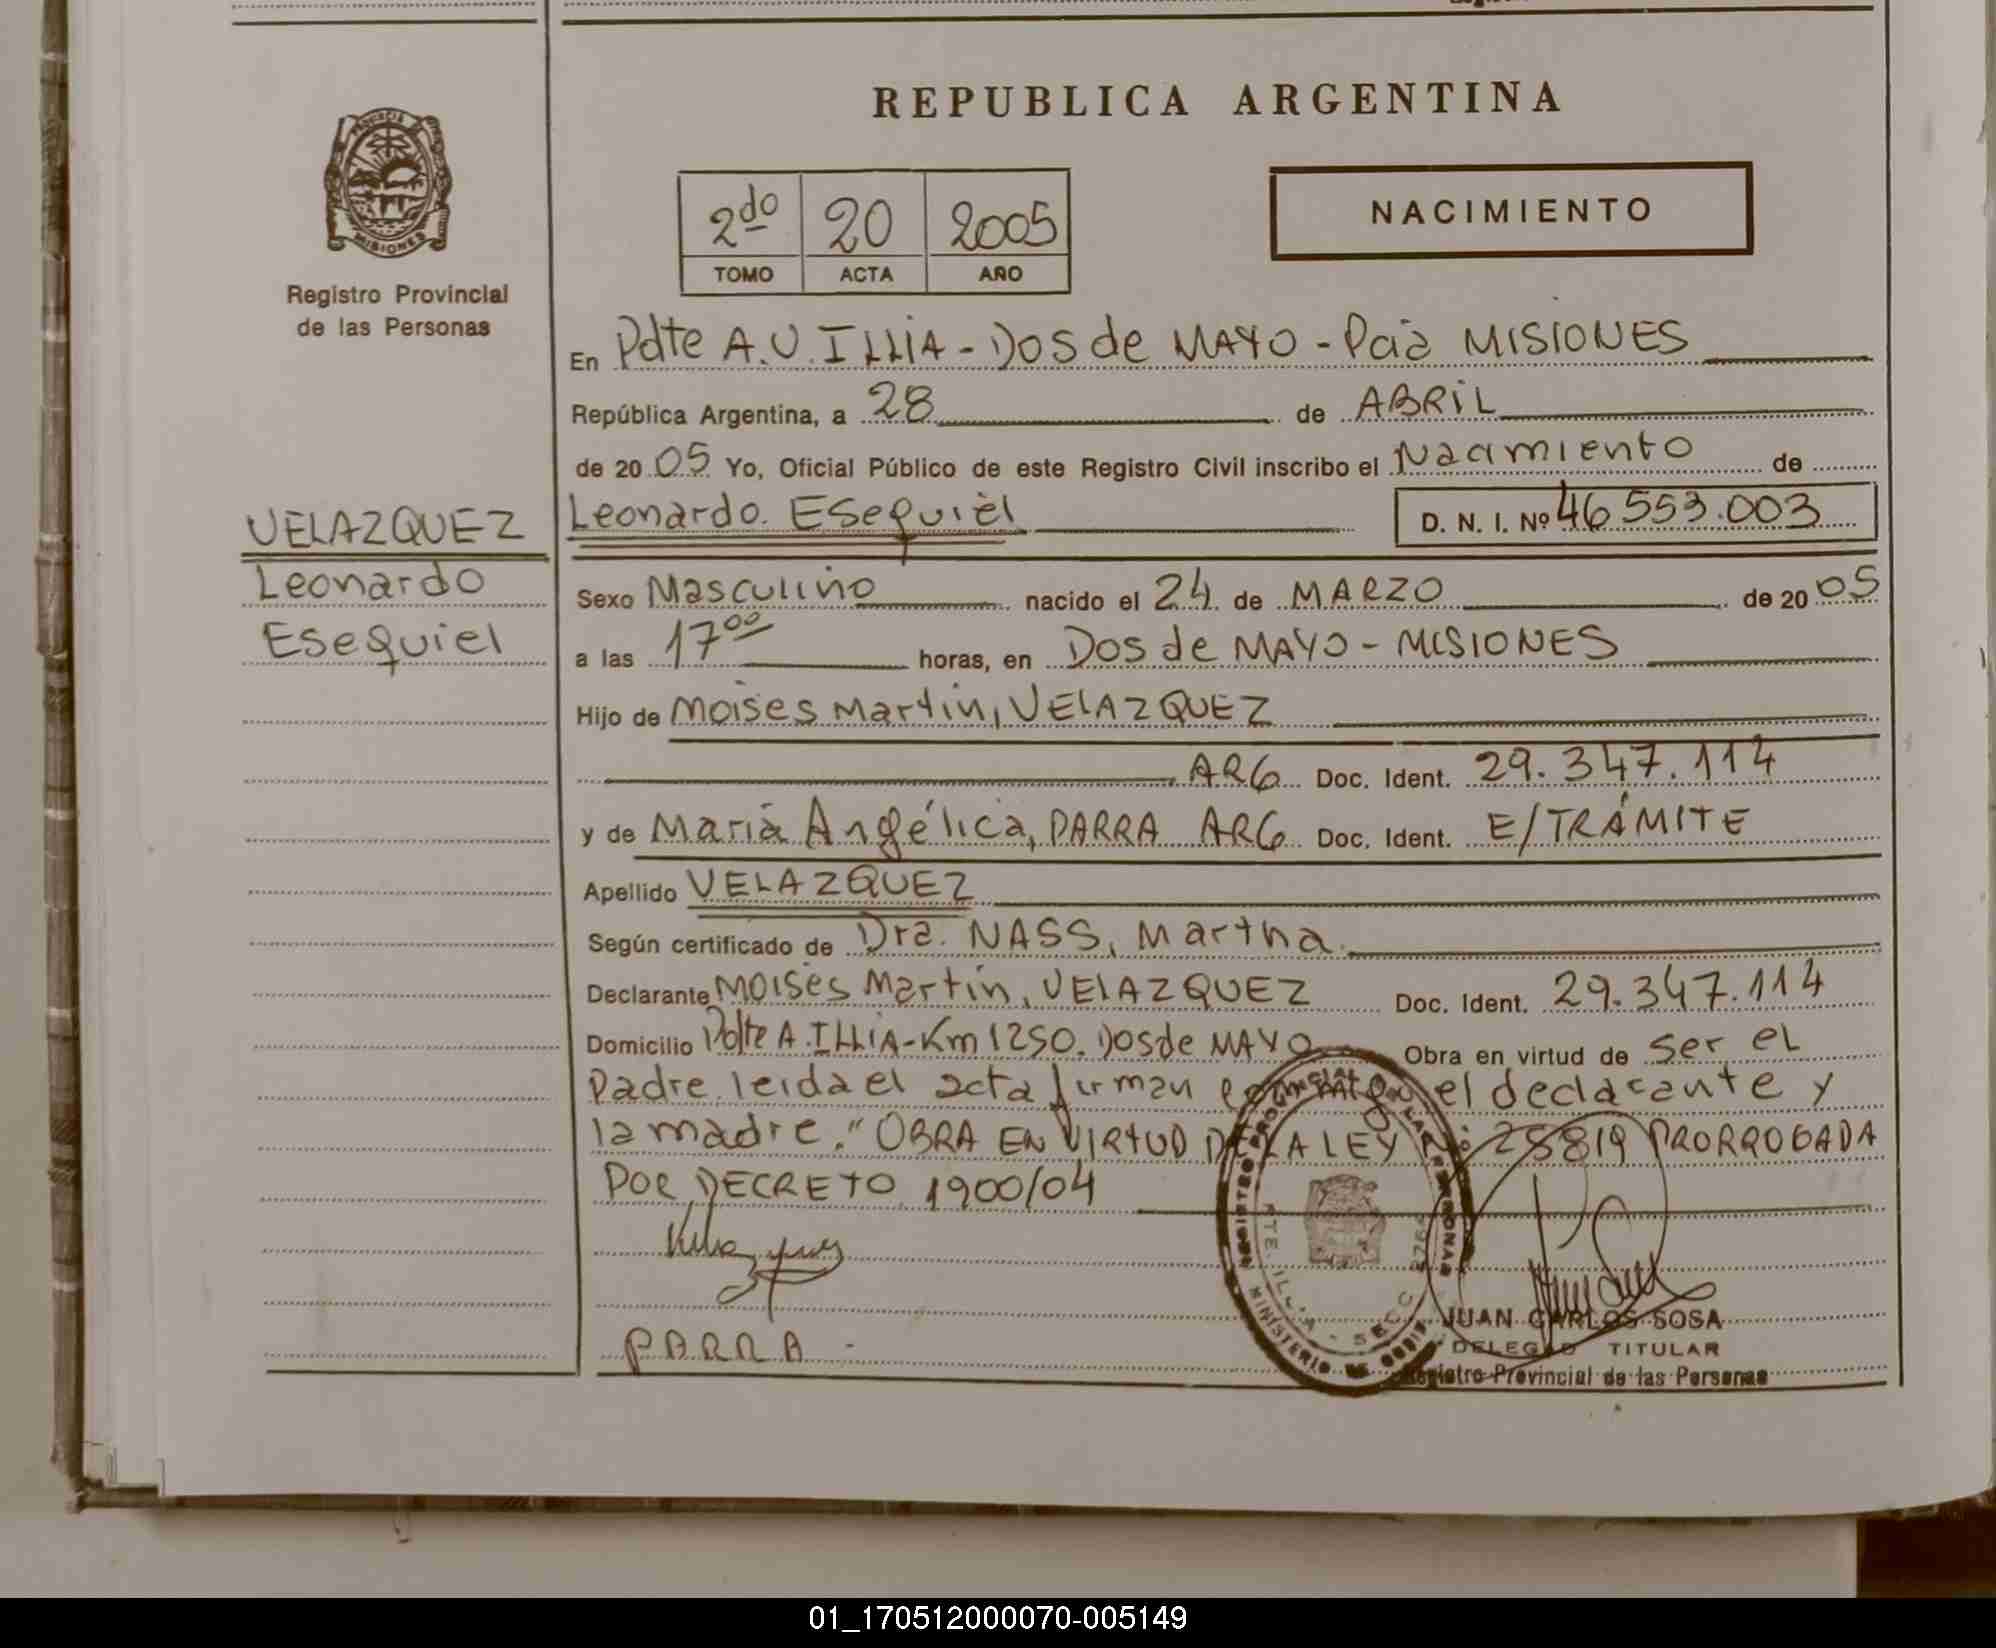 REPUBLICA ARGENTINA
PROVINCIA DE
MISIONES
Registro Provincial
de las Personas
2do 20 2005
TOMO ACTA AÑO
NACIMIENTO
En Pdte A.U. ILLIA - DOS de MAYO - Pcia MISIONES
República Argentina, a 28 de ABRIL
de 2005 Yo, Oficial Público de este Registro Civil inscribo el Nacimiento de
VELAZQUEZ
Leonardo
Esequiel
Leonardo. Esequiel D. N. I. Nº 46553.003
Sexo Masculino nacido el 24 de MARZO de 2005
a las 17 00 horas, en DOS de MAYO - MISIONES
Hijo de Moises Martin, VELAZQUEZ
ARG Doc. Ident. 29.347.114
y de Maria Angélica, PARRA ARG Doc. Ident. E/TRÁMITE
Apellido VELAZQUEZ
Según certificado de Dra. NASS, Martha
Declarante Moises Martin, VELAZQUEZ Doc. Ident. 29.347.114
Domicilio Pdte A. ILLIA - Km 1250. Dos de MAYO Obra en virtud de ser el
Padre. leida el acta firman conmigo el declarante y
la madre. "OBRA EN VIRTUD DE LA LEY Nº 25819 PRORROGADA
POR DECRETO 1900/04
Velazquez
PARRA -
REGISTRO PROVINCIAL DE LAS PERSONAS
MINISTERIO DE GOBIERNO
PTE. ILLIA - SECC
JUAN CARLOS SOSA
DELEGADO TITULAR
Registro Provincial de las Personas
01_170512000070-005149